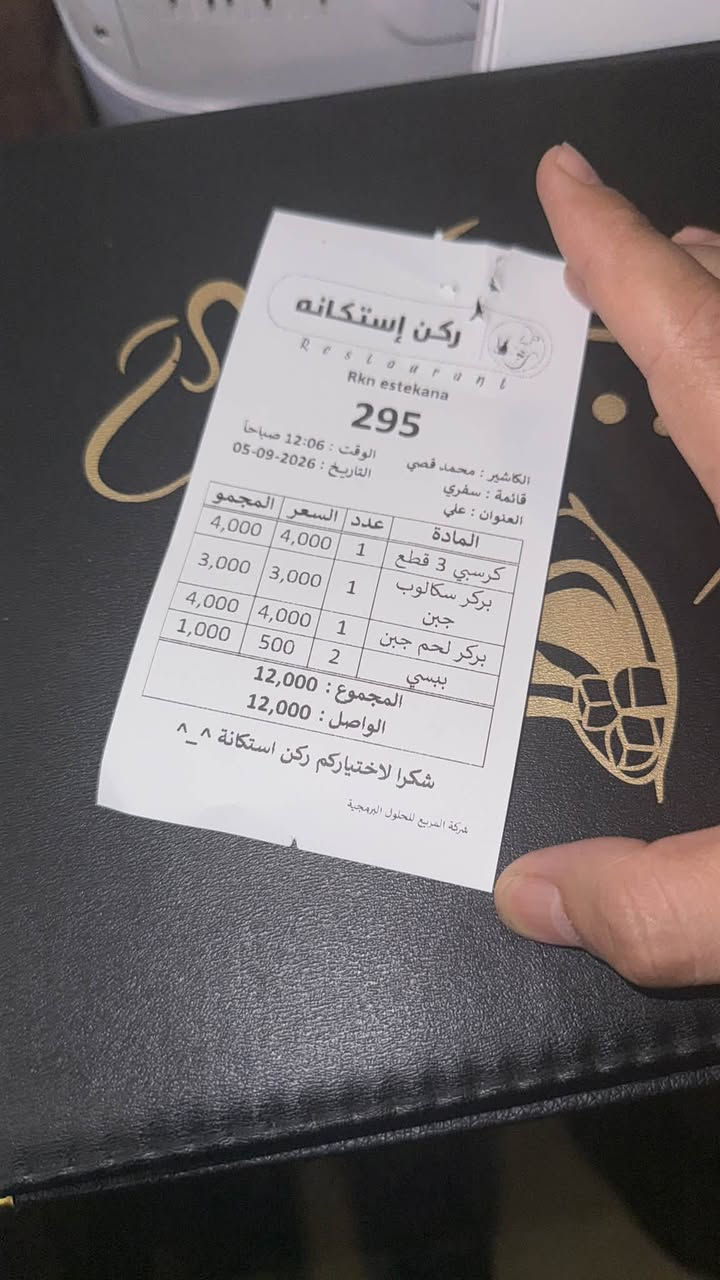 ركن إستكانه
Restaurant
Rkn estekana
295
الكاشير : محمد قصي الوقت : 12:06 صباحاً
قائمة : سفري التاريخ : 2026-09-05
العنوان : علي
المادة عدد السعر المجمو
كرسبي 3 قطع 1 4,000 4,000
بركر سكالوب جبن 1 3,000 3,000
بركر لحم جبن 1 4,000 4,000
ببسي 2 500 1,000
المجموع : 12,000
الواصل : 12,000
شكرا لاختياركم ركن استكانة ^_^
شركة المربع للحلول البرمجية